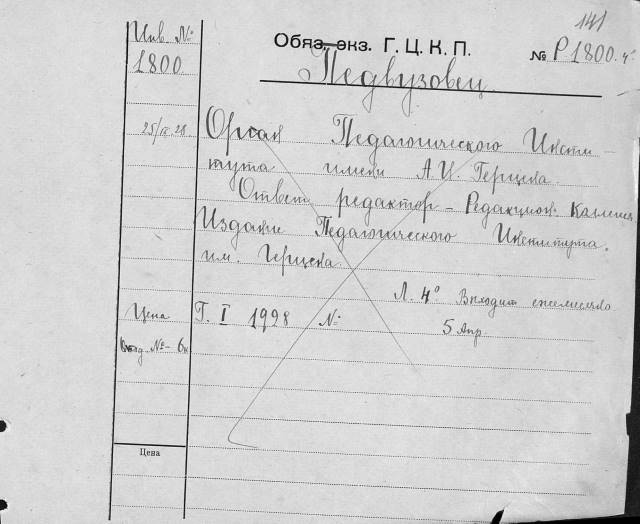 141
Инв. №
1800
Обяз. экз. Г. Ц. К. П.
№ Р1800
Педвузовец.
25/II 28
Орган Педагогического Инсти-
тута имени А.И. Герцена.
Ответ редактор - Редакцион. Коллегия
Издание Педагогического Института.
им. Герцена.
Л. 4° Выходит ежемесячно
Цена
Г. I 1928 №
5 Апр.
№ - 6к
Цена